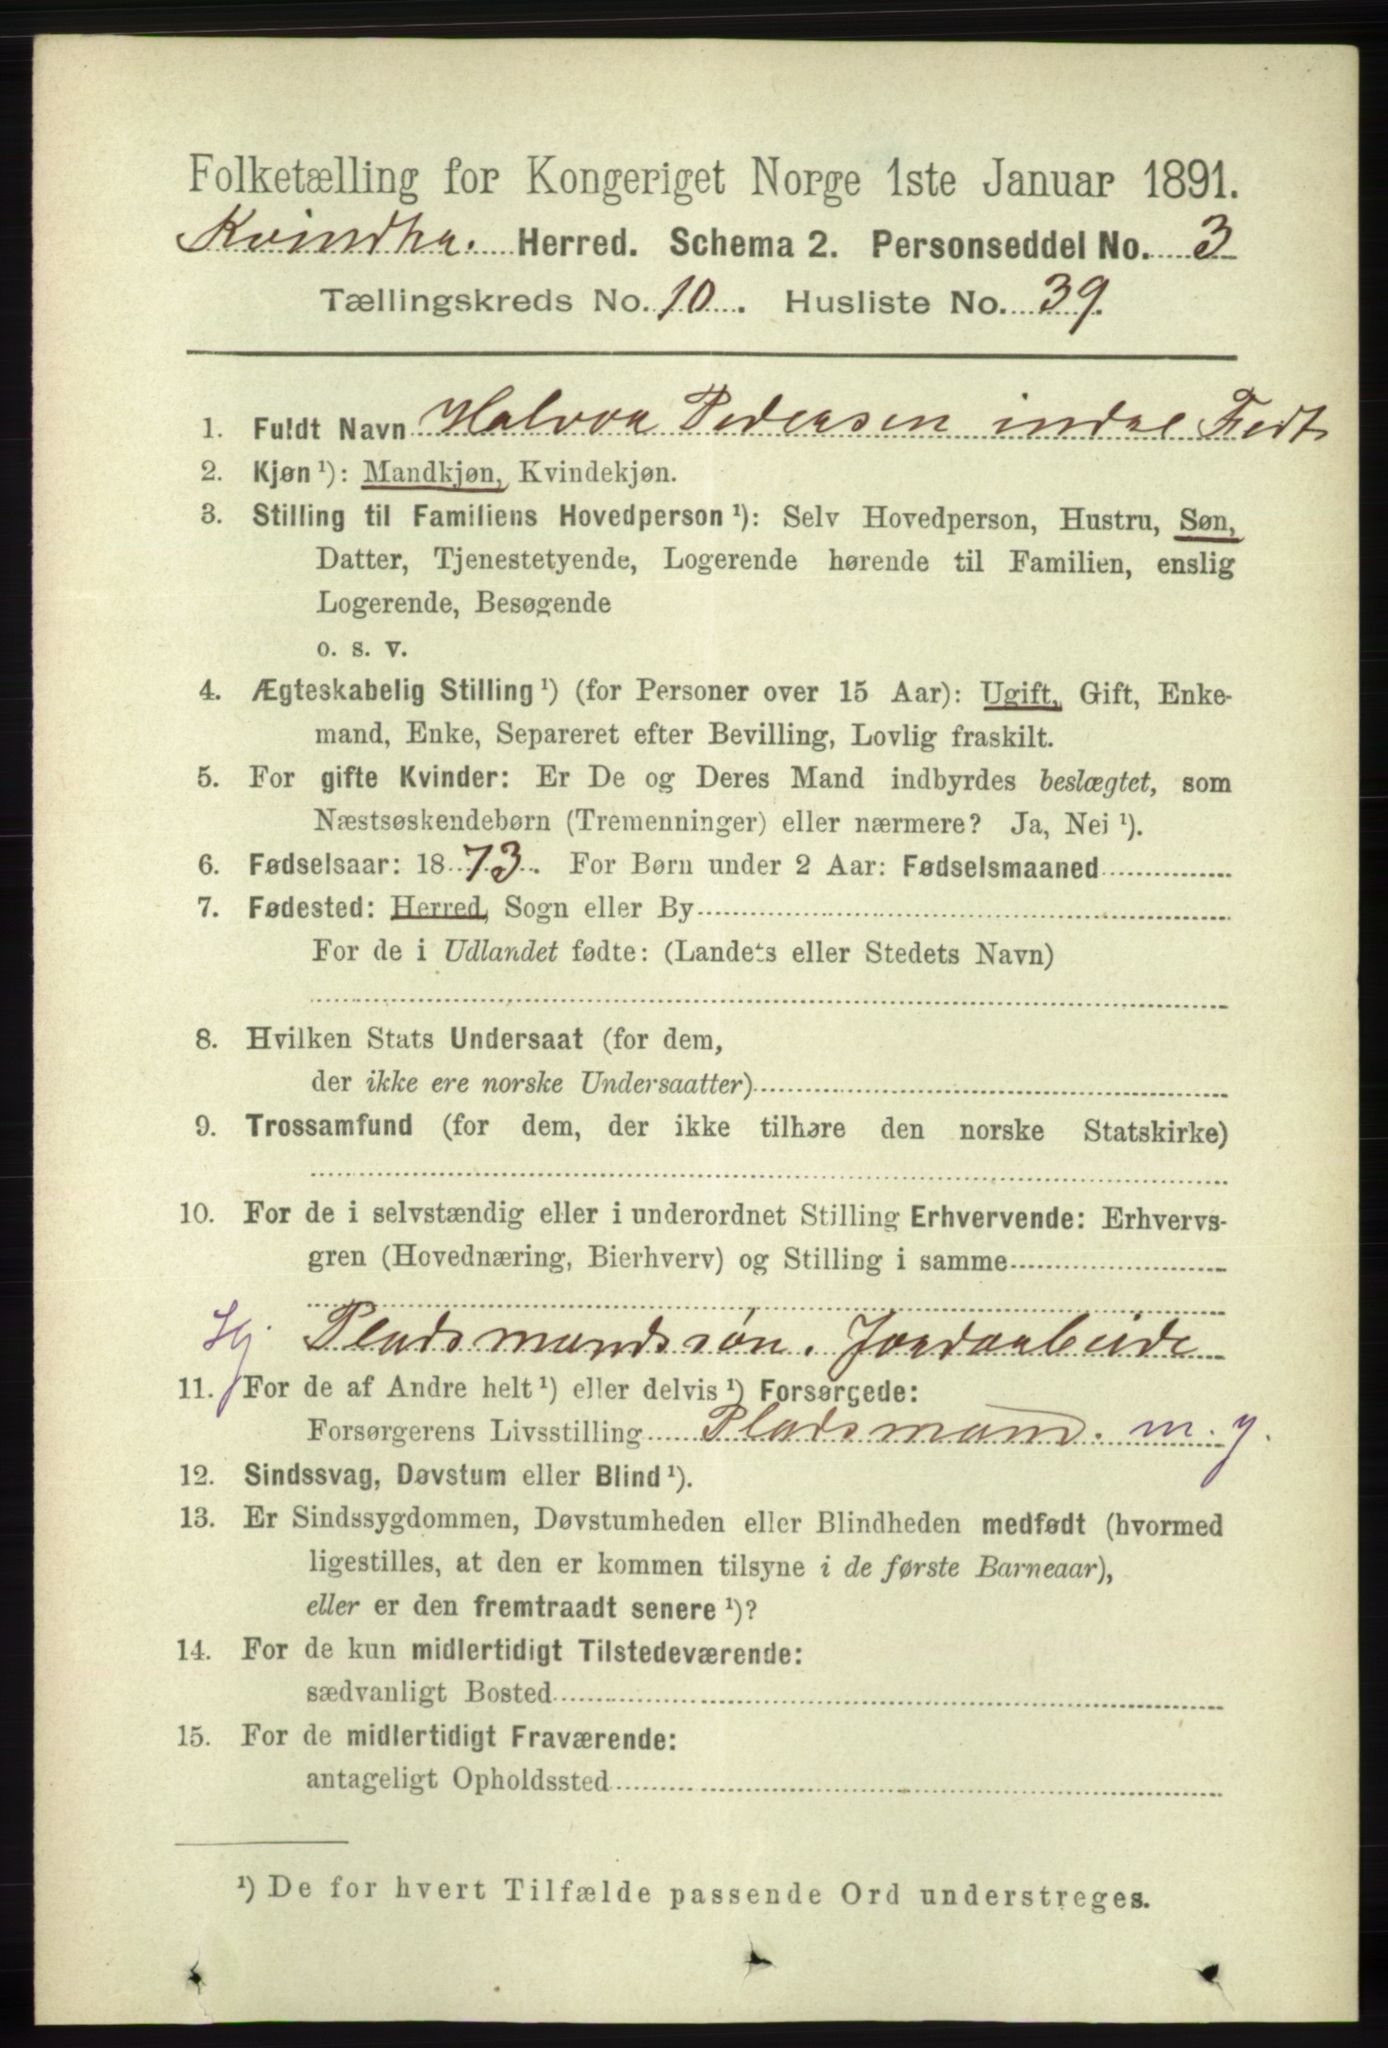 Folketælling for Kongeriget Norge 1ste Januar 1891.
Kvindhe. Herred. Schema 2. Personseddel No. 3
Tællingskreds No. 10. Husliste No. 39.
1. Fuldt Navn Halvor Pedersen indre Fedt
2. Kjøn ¹): Mandkjøn, Kvindekjøn.
3. Stilling til Familiens Hovedperson ¹): Selv Hovedperson, Hustru, Søn,
Datter, Tjenestetyende, Logerende hørende til Familien, enslig
Logerende, Besøgende
o. s. v.
4. Ægteskabelig Stilling ¹) (for Personer over 15 Aar): Ugift, Gift, Enke-
mand, Enke, Separeret efter Bevilling, Lovlig fraskilt.
5. For gifte Kvinder: Er De og Deres Mand indbyrdes beslægtet, som
Næstsøskendebørn (Tremenninger) eller nærmere? Ja, Nei ¹).
6. Fødselsaar: 1873. For Børn under 2 Aar: Fødselsmaaned
7. Fødested: Herred, Sogn eller By
For de i Udlandet fødte: (Landets eller Stedets Navn)
8. Hvilken Stats Undersaat (for dem,
der ikke ere norske Undersaatter)
9. Trossamfund (for dem, der ikke tilhøre den norske Statskirke)
10. For de i selvstændig eller i underordnet Stilling Erhvervende: Erhvervs-
gren (Hovednæring, Bierhverv) og Stilling i samme
Hj. Pladsmandssøn. Jordarbeide
11. For de af Andre helt ¹) eller delvis ¹) Forsørgede:
Forsørgerens Livsstilling Pladsmand. m. j.
12. Sindssvag, Døvstum eller Blind ¹).
13. Er Sindssygdommen, Døvstumheden eller Blindheden medfødt (hvormed
ligestilles, at den er kommen tilsyne i de første Barneaar),
eller er den fremtraadt senere ¹)?
14. For de kun midlertidigt Tilstedeværende:
sædvanligt Bosted
15. For de midlertidigt Fraværende:
antageligt Opholdssted
¹) De for hvert Tilfælde passende Ord understreges.